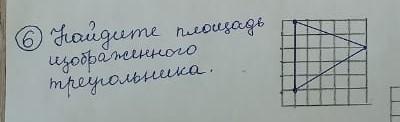 6 Найдите площадь
изображенного
треугольника.